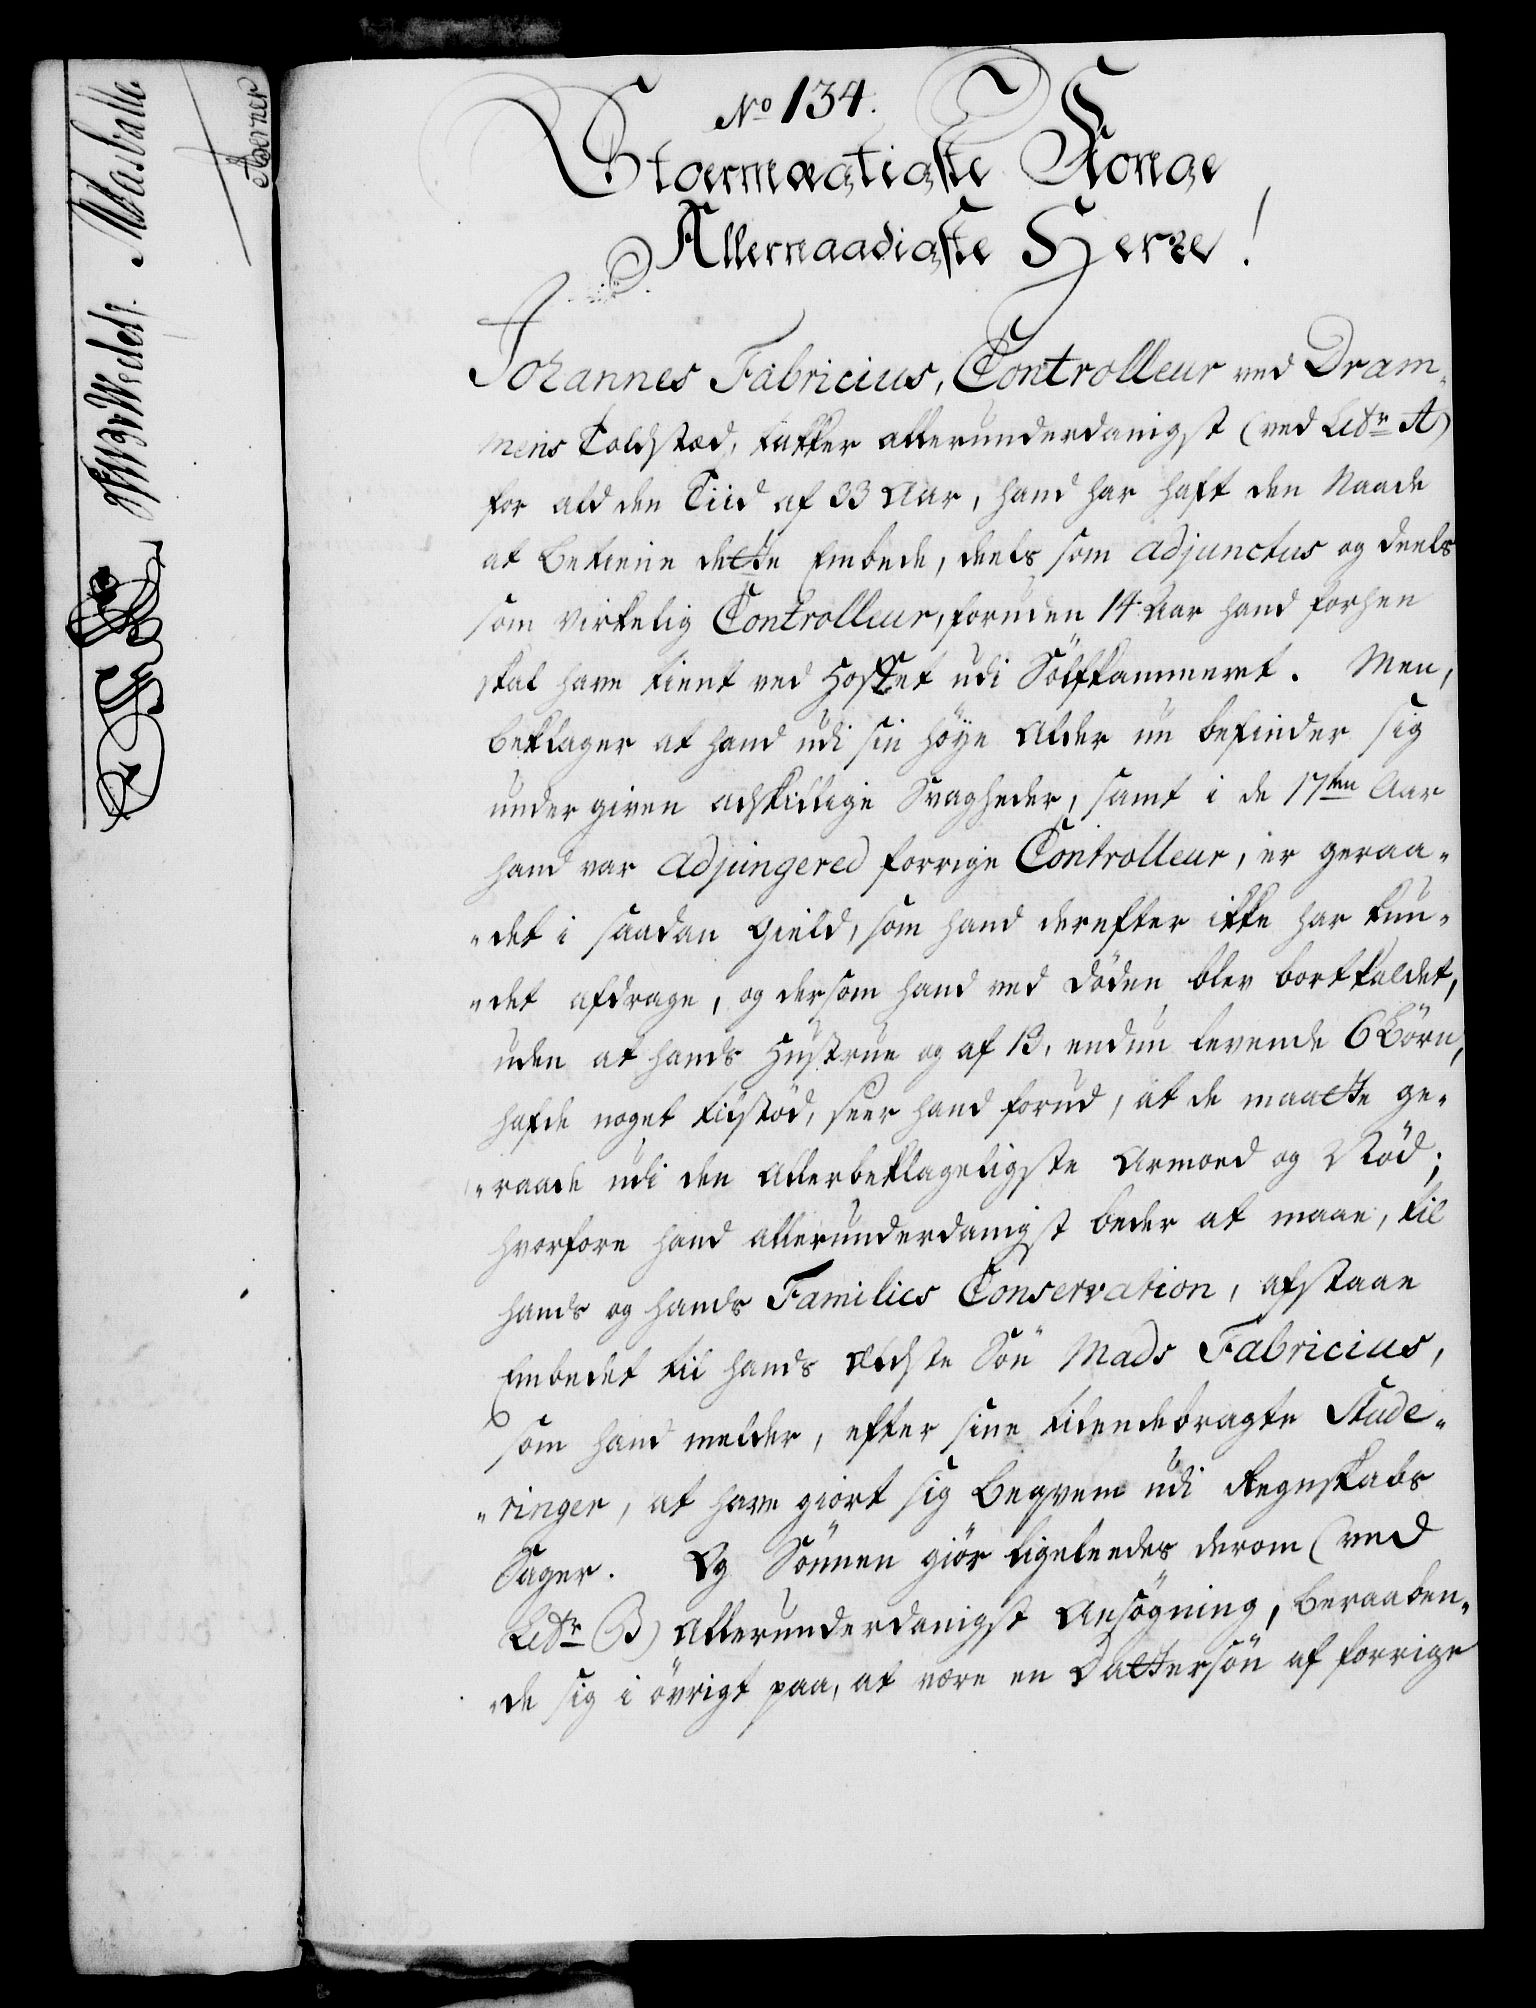 No 134.
Stoermægtigste Konge
Allernaadigste Herre!
Johannes Fabricius, Controlleur ved Dram-
mens Toldstæd, takker allerunderdanigst (ved Litr A)
for ald den Tiid af 33 Aar, hand har haft den Naade
at betiene dette Embede, deels som adjunctus og deels
som virkelig Controlleur, foruden 14 Aar hand forhen
skal have tient ved Hoffet udi Sölfkammeret. Men,
beklager at hand udi sin höye Alder nu befinder sig
undergiven adskillige Svagheder, samt i de 17ten Aar
hand var adjungered forrige Controlleur, er geraa-
"det i saadan Gield, som hand derefter ikke har kun-
"det afdrage, og dersom hand ved Döden blev bortkaldet,
uden at hands Hustrue og af 13, endnu levende 6 Börn,
hafde noget tilstöd, seer hand forud, at de maatte ge-
"raade udi den allerbeklageligste Armoed og Nöd;
hvorfore hand allerunderdanigst beder at maae, til
hands og hands Families Conservation, afstaae
Embedet til hands Ældste Sön Mads Fabricius,
som hand melder, efter sine tilendebragte Stude-
"ringer, at have giort sig beqvem udi Regnskabs
Sager. Og Sönnen giör ligeleedes derom (ved
Litr B) allerunderdanigst Ansögning, beraaben-
"de sig i övrigt paa, at være en Dattersön af forrige